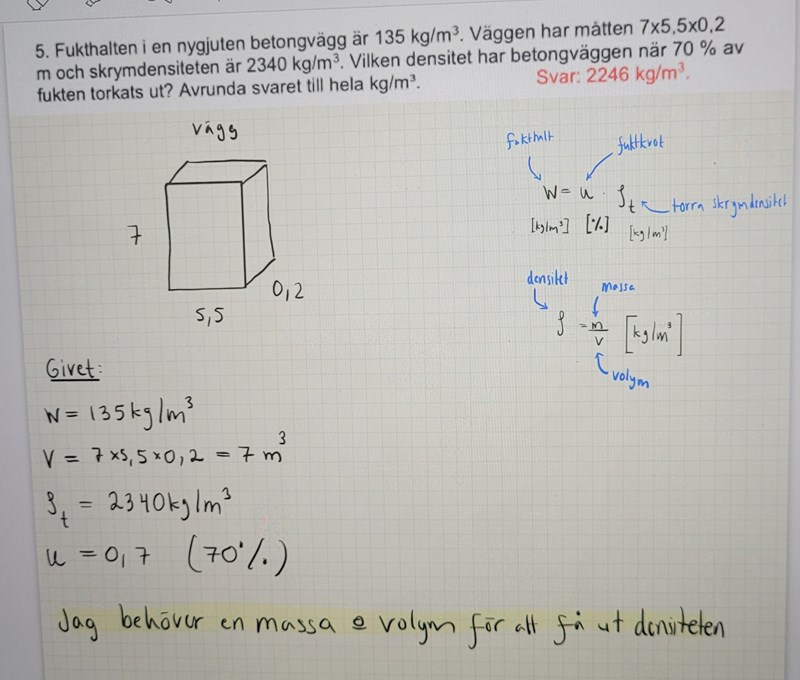 5. Fukthalten i en nygjuten betongvägg är 135 kg/m³. Väggen har måtten 7x5,5x0,2
m och skrymdensiteten är 2340 kg/m³. Vilken densitet har betongväggen när 70 % av
fukten torkats ut? Avrunda svaret till hela kg/m³.
Svar: 2246 kg/m³.
vägg
7
5,5
0,2
fukthalt
fuktkvot
W = u · ρt
torra skrymdensitet
[kg/m³] [%] [kg/m³]
densitet
massa
ρ = m/v [kg/m³]
volym
Givet:
W = 135 kg/m³
V = 7 x 5,5 x 0,2 = 7 m³
ρt = 2340 kg/m³
u = 0,7 (70%)
Jag behöver en massa o volym för att få ut densiteten